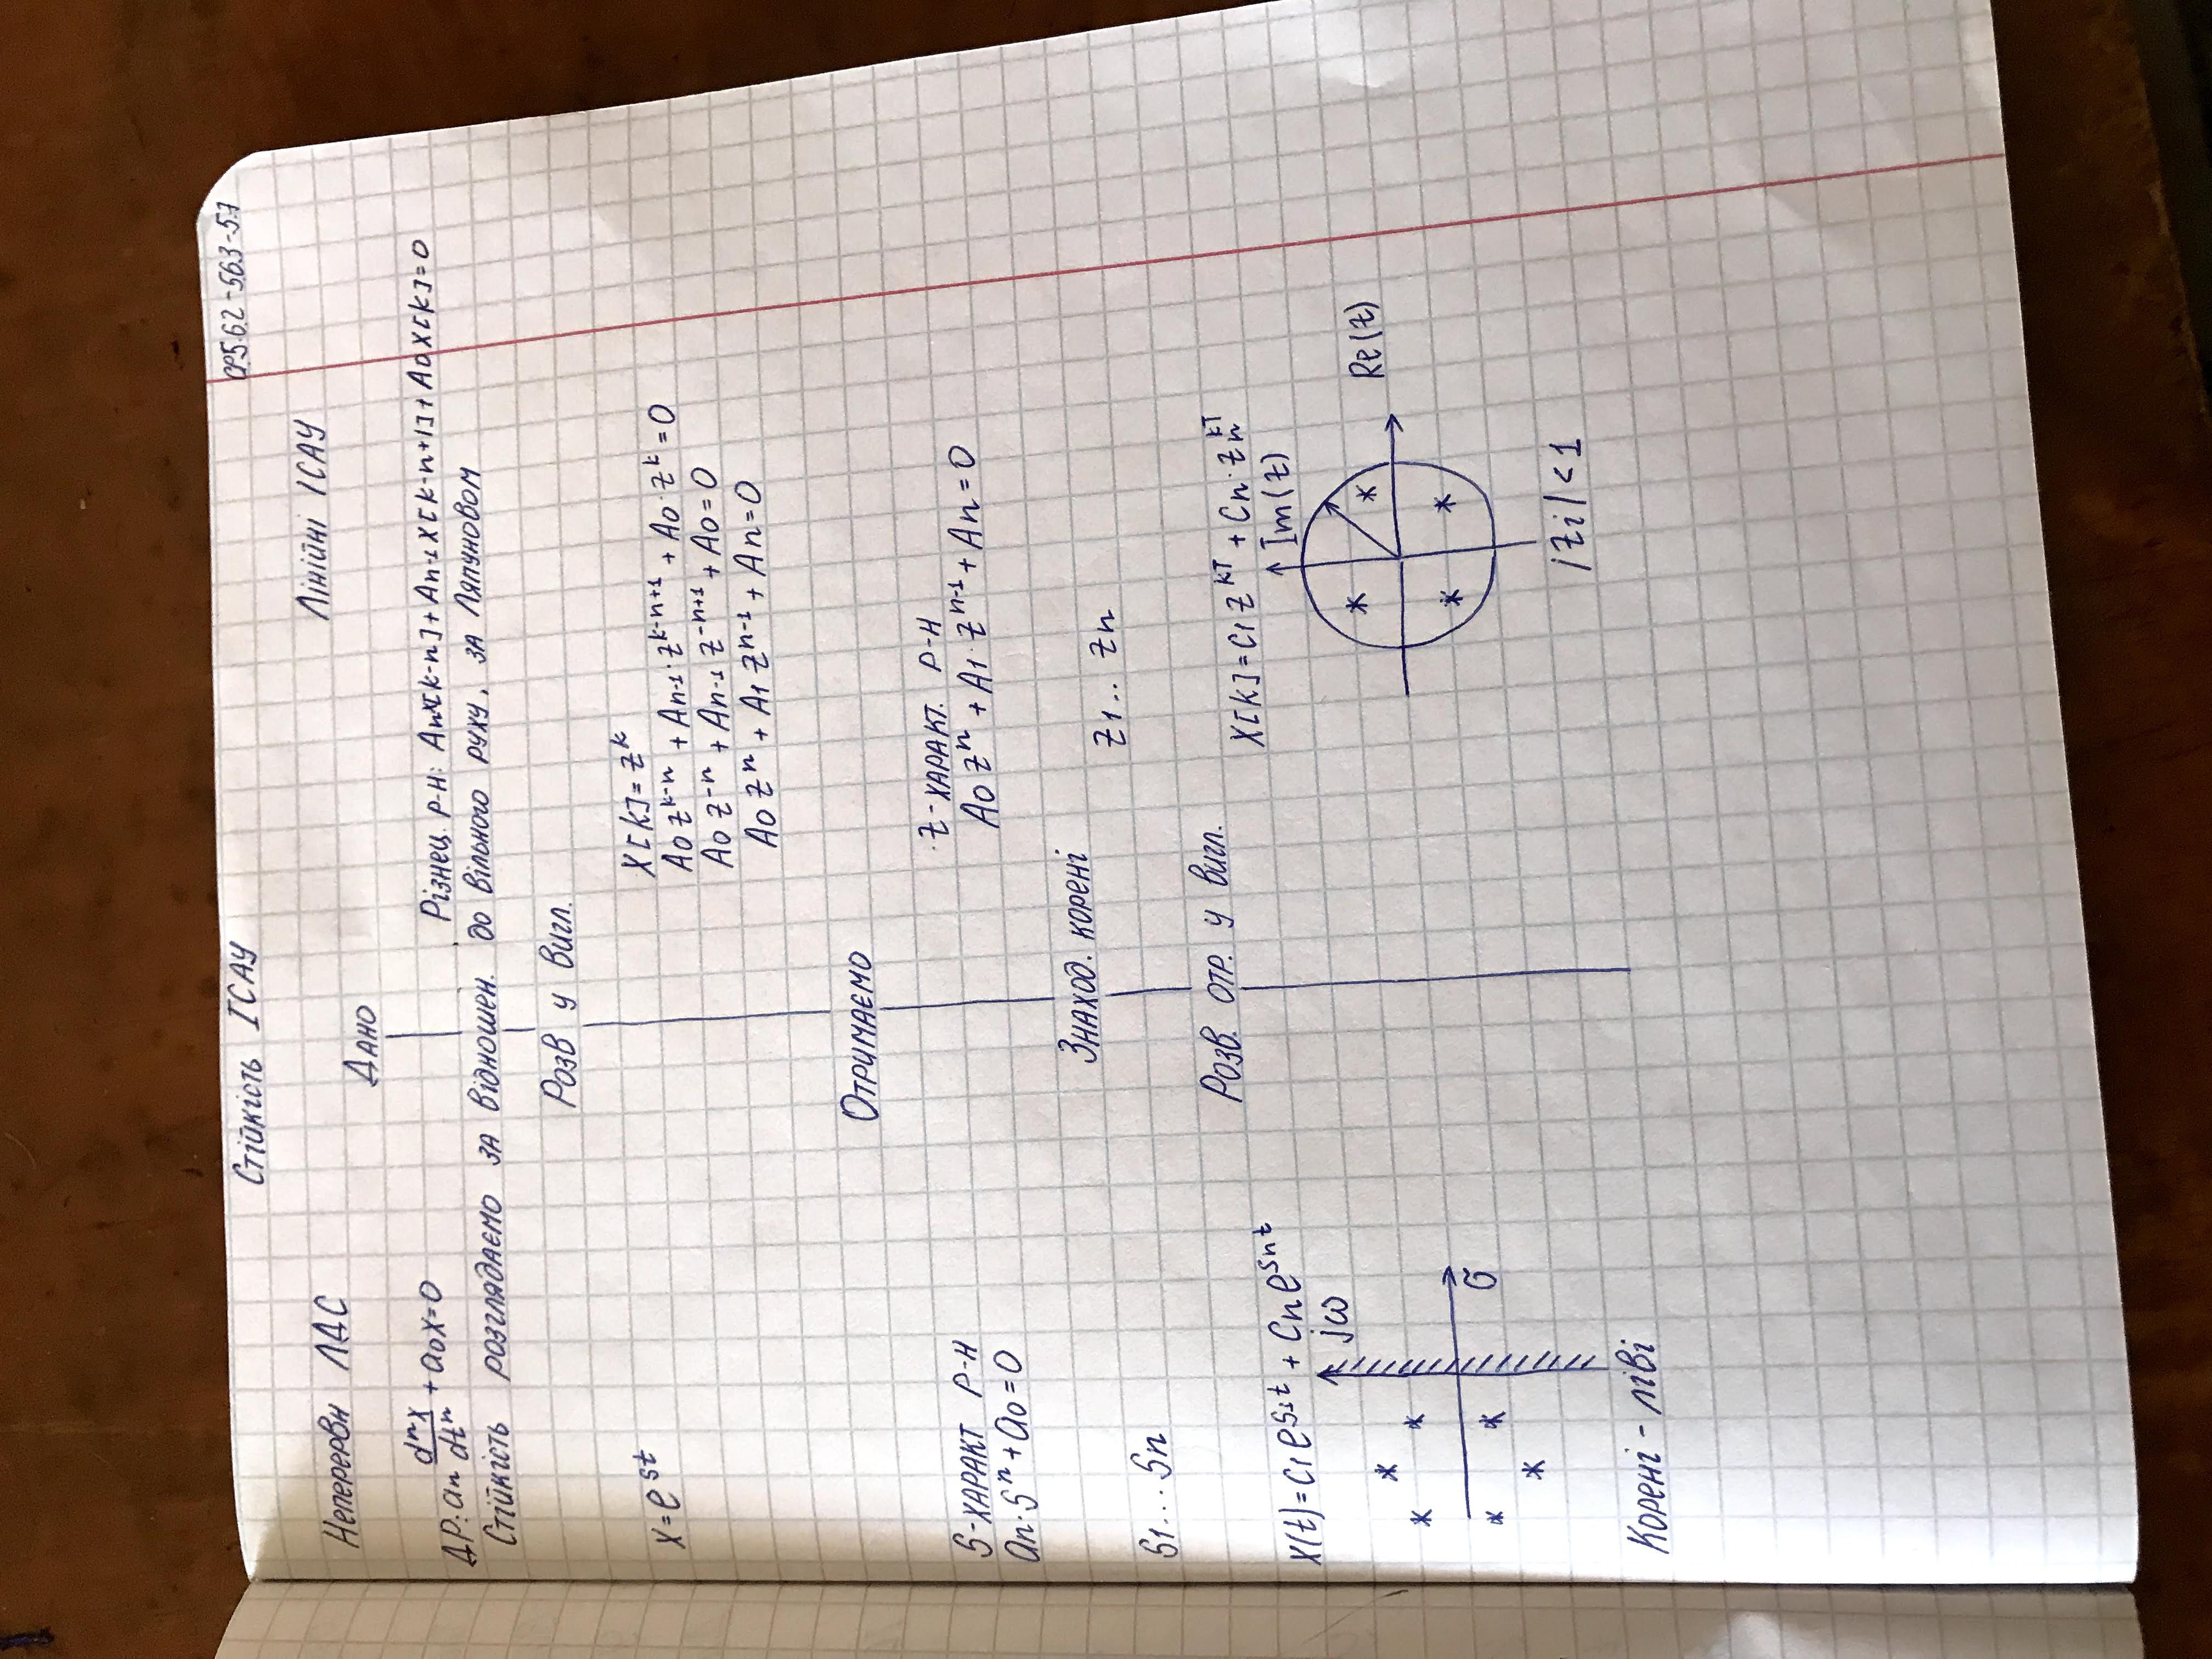 Стійкість ІСАУ
СР5.6.2-5.6.3-5.7
Неперервн ЛДС
Лінійні ІСАУ
Дано
ДР: an dⁿx/dtⁿ + a0x=0
Різнец. р-н: Anx[k-n]+An-1x[k-n+1]+A0x[k]=0
Стійкість розглядаємо за відношен. до вільного руху, за Ляпуновом
Розв у вигл.
x=e^st
X[k]=z^k
A0 z^k-n + An-1·z^k-n+1 + A0·z^k=0
A0 z^-n + An-1 z^-n+1 + A0=0
A0 z^n + A1 z^n-1 + An=0
Отримаємо
S-характ р-н
an·S^n+a0=0
Z-характ. р-н
A0 z^n + A1·z^n-1+An=0
Знаход. корені
S1...Sn
Z1.. Zn
Розв. отр. у вигл.
X(t)=C1e^S1t + Cne^Snt
X[k]=C1z^kT + Cn·zn^kT
jω
σ
Im(z)
Re(z)
|Zi|<1
Корені - ліві